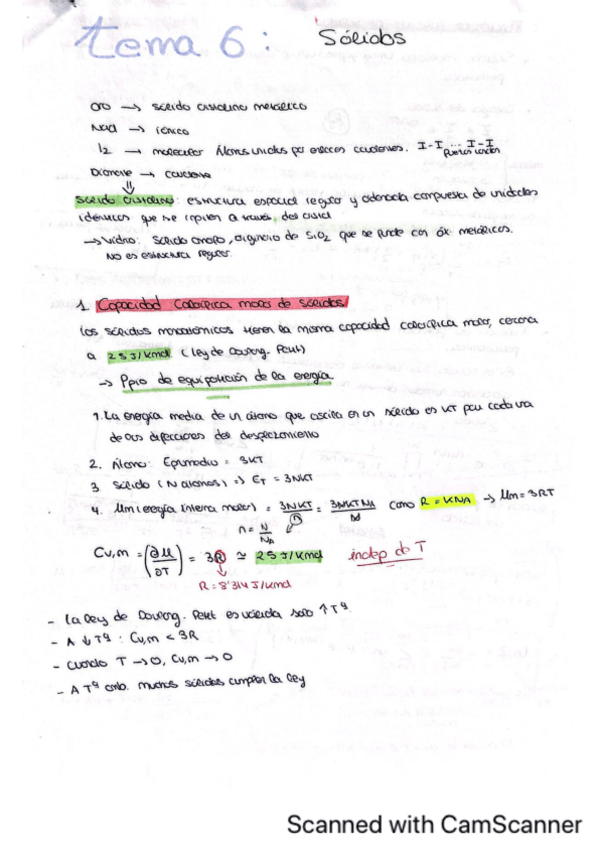 tema 6: Sólidos
Oro → sólido cristalino metálico
NaCl → iónico
I2 → molecular Átomos unidos por enlaces covalentes. I-I ... I-I
Diamante → covalente
⇓
Sólido cristalino: estructura espacial regular y ordenada compuesta de unidades
idénticas que se repiten a través del cristal
→ Vidrio: Sólido amorfo, originario de SiO2 que se funde con óx. metálicos.
No es estructura regular.
1. Capacidad Calorífica molar de Sólidos
Los sólidos monoatómicos tienen la misma capacidad calorífica molar, cercana
a 25 J/Kmol (Ley de Doulong-Petit)
→ Ppio de equipartición de la energía
1. La energía media de un átomo que oscila en un sólido es KT para cada una
de sus direcciones del desplazamiento
2. Átomo: Epromedio = 3KT
3. Sólido (N átomos) => ET = 3NKT
4. Um (energía interna molar) = 3NKT/n = 3NKTNA/N como R = KNA → Um = 3RT
n = N/NA
Cv,m = (∂U/∂T) = 3R ≅ 25 J/Kmol indep de T
R = 8'314 J/Kmol
- La Ley de Doulong-Petit es válida solo ↑Tª
- A ↓Tª : Cv,m < 3R
- Cuando T → 0, Cv,m → 0
- A Tª amb. muchos sólidos cumplen la ley
Scanned with CamScanner